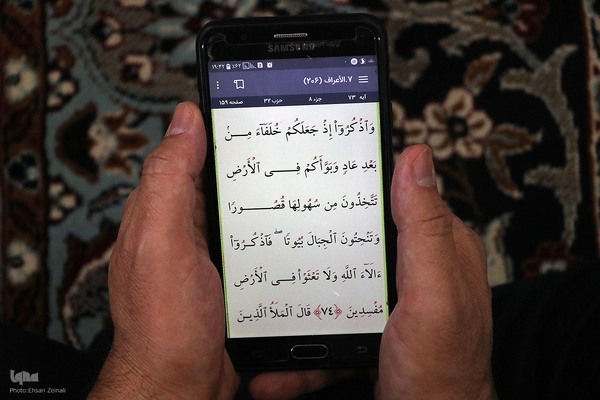 SAMSUNG
۱۹:۴۲
۷.الأعراف (۲۰۶)
آیه ۷۳ جزء ۸ حزب ۳۲ صفحه ۱۵۹
وَٱذْكُرُوٓا۟ إِذْ جَعَلَكُمْ خُلَفَآءَ مِنۢ
بَعْدِ عَادٍ وَبَوَّأَكُمْ فِى ٱلْأَرْضِ
تَتَّخِذُونَ مِن سُهُولِهَا قُصُورًا
وَتَنْحِتُونَ ٱلْجِبَالَ بُيُوتًا ۖ فَٱذْكُرُوٓا۟
ءَالَآءَ ٱللَّهِ وَلَا تَعْثَوْا۟ فِى ٱلْأَرْضِ
مُفْسِدِينَ ﴿۷۴﴾ قَالَ ٱلْمَلَأُ ٱلَّذِينَ
iqna
Photo:Ehsan Zeinali